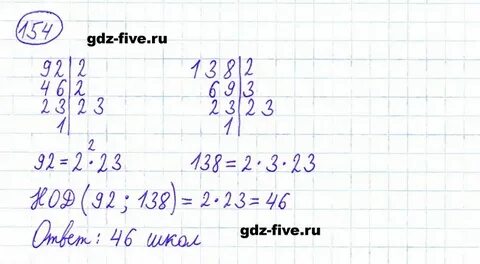 154
gdz-five.ru
92|2 138|2
46|2 69|3
23|23 23|23
1| 1|
92 = 2²·23 138 = 2·3·23
НОД (92; 138) = 2·23 = 46
Ответ: 46 школ
gdz-five.ru